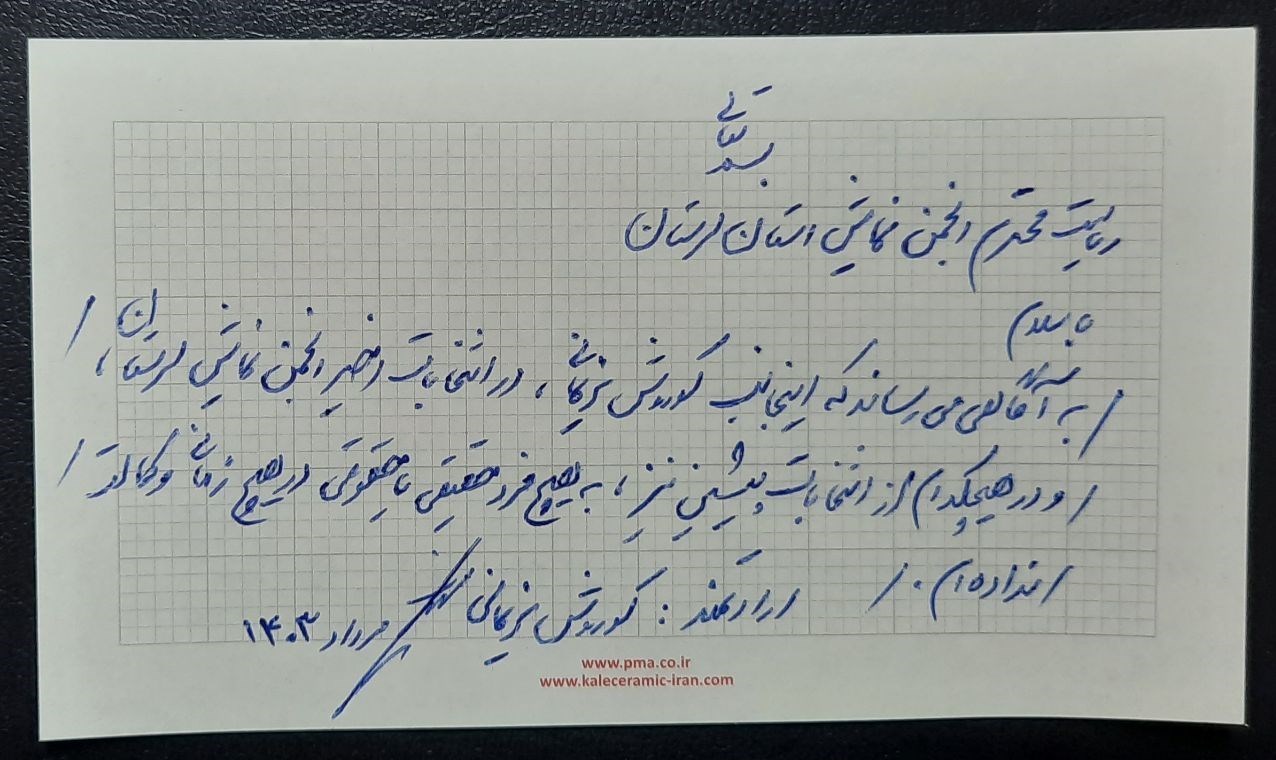 بسمه تعالی
ریاست محترم انجمن نمایش استان لرستان
با سلام
/ به آگاهی می رساند که اینجانب کوروش نریمانی ، در انتخابات اخیر انجمن نمایش لرستان ، /
/ و در هیچکدام از انتخابات پیشین نیز ، به هیچ فرد حقیقی یا حقوقی در هیچ زمانی وکالت /
/ نداده ام . / ارادتمند : کوروش نریمانی مرداد ۱۴۰۳
www.pma.co.ir
www.kaleceramic-iran.com